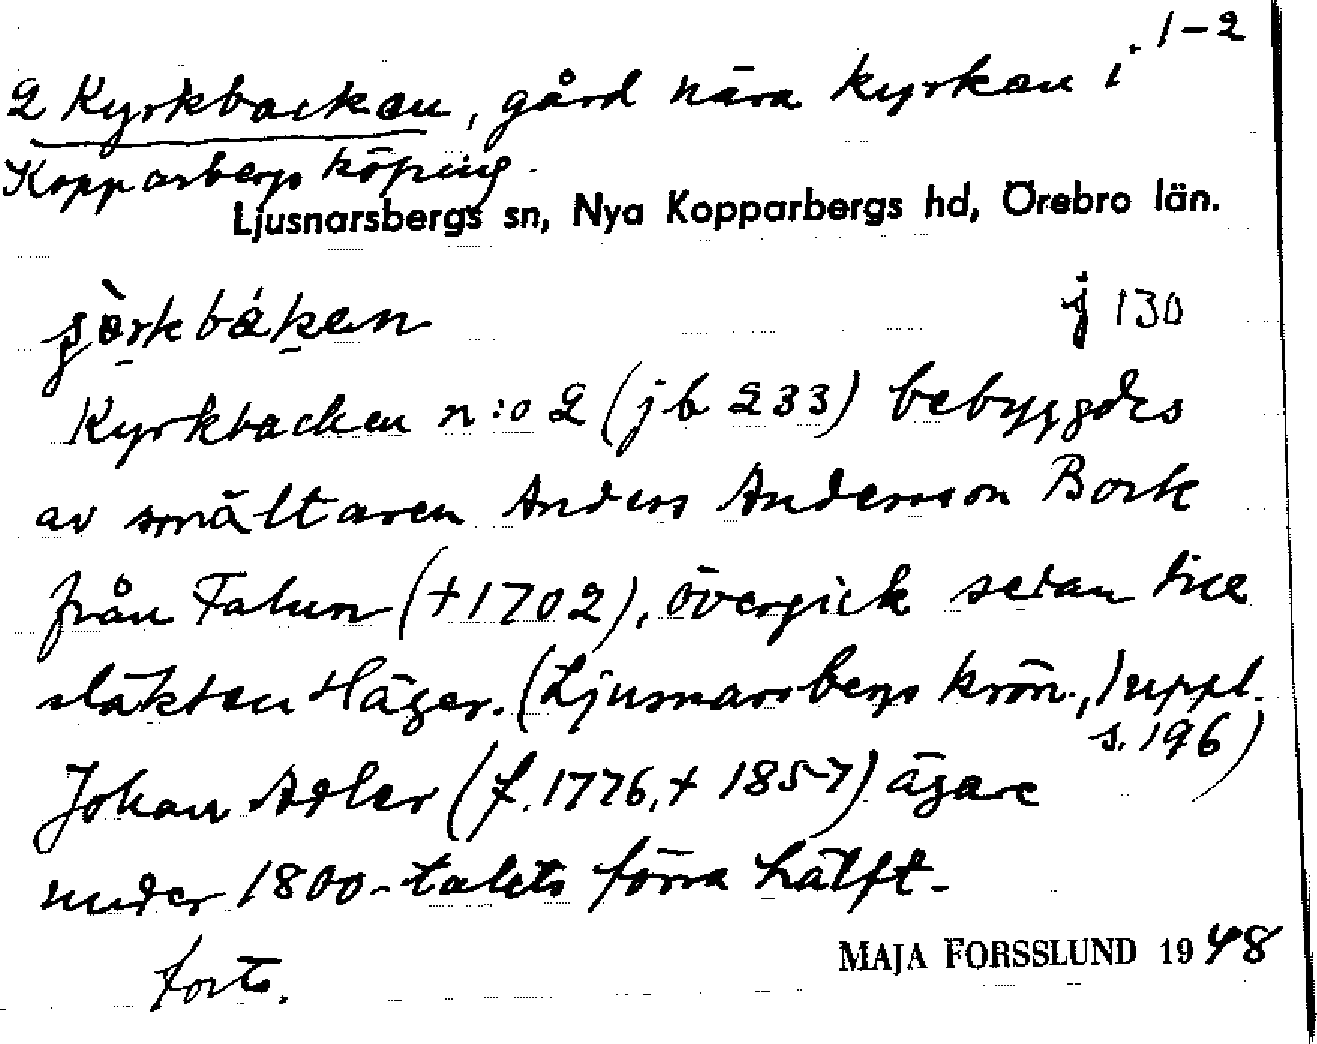 1-2
2 Kyrkbacken, gård nära kyrkan i
Kopparbergs köping.
Ljusnarsbergs sn, Nya Kopparbergs hd, Örebro län.
j 130
Kyrkbacken n:o 2 (jb 233) bebyggdes
av smältaren Anders Andersson Bock
från Falun (+1702), övergick sedan till
släkten Häger. (Ljusnarsbergs krön., suppl.
s. 196)
Johan Adler (f. 1776, + 1857) ägare
under 1800-talets förra hälft.
forts.
MAJA FORSSLUND 1948